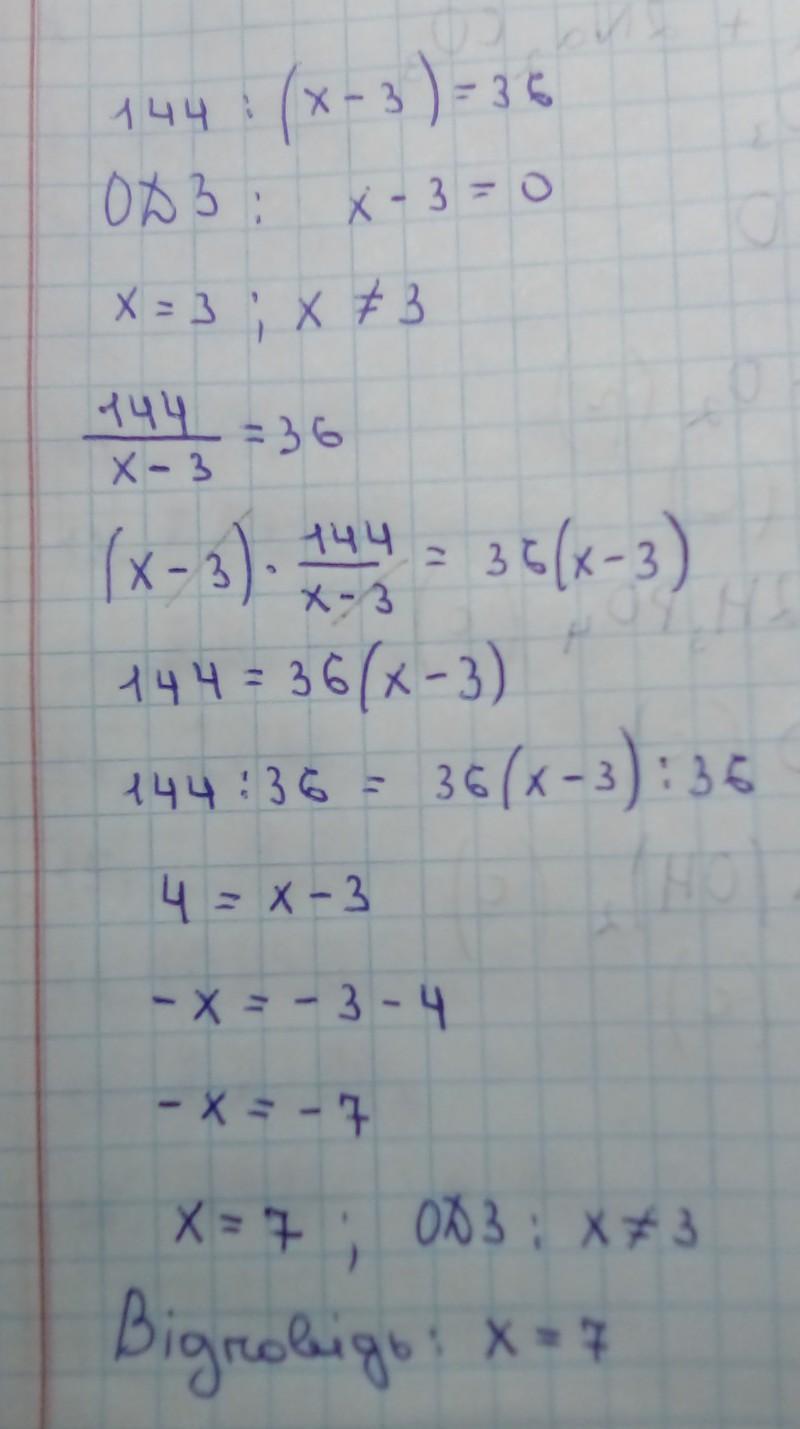 144 : (x - 3) = 36
ОДЗ : x - 3 = 0
x = 3 ; x ≠ 3
144/(x - 3) = 36
(x - 3) · 144/(x - 3) = 36(x - 3)
144 = 36(x - 3)
144 : 36 = 36(x - 3) : 36
4 = x - 3
- x = - 3 - 4
- x = - 7
x = 7 ; ОДЗ : x ≠ 3
Відповідь : x = 7